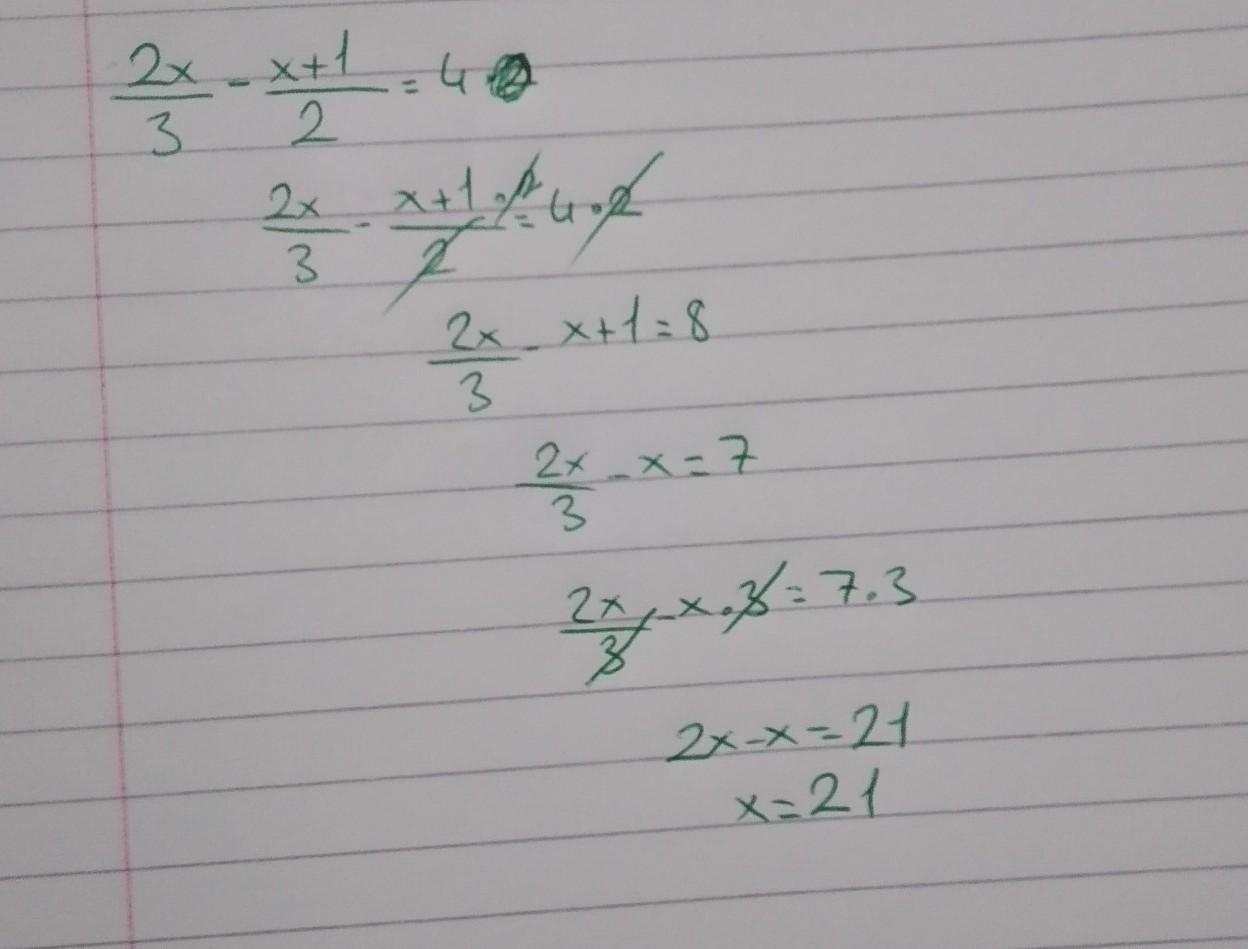 2x/3 - x+1/2 = 4
2x/3 - x+1·2/2 = 4·2
2x/3 - x+1=8
2x/3 - x=7
2x/3 - x·3=7.3
2x-x=21
x=21